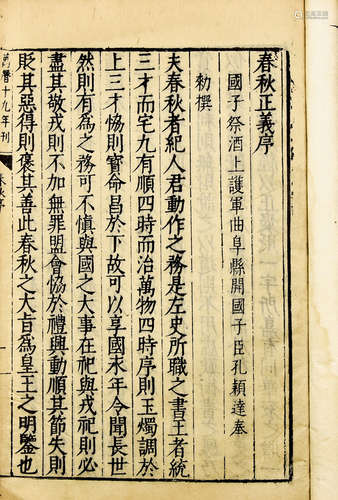 春秋正義序
國子祭酒上護軍曲阜縣開國子臣孔穎達奉
勑撰
夫春秋者紀人君動作之務是左史所職之書王者統
三才而宅九有順四時而治萬物四時序則玉燭調於
上三才恊則寳命昌於下故可以享國永年令聞長世
然則有為之務可不慎與國之大事在祀與戎祀則必
盡其敬戎則不加無罪盟會恊於禮興動順其節失則
貶其惡得則褒其善此春秋之大旨為皇王之明鑒也
萬曆十九年刊